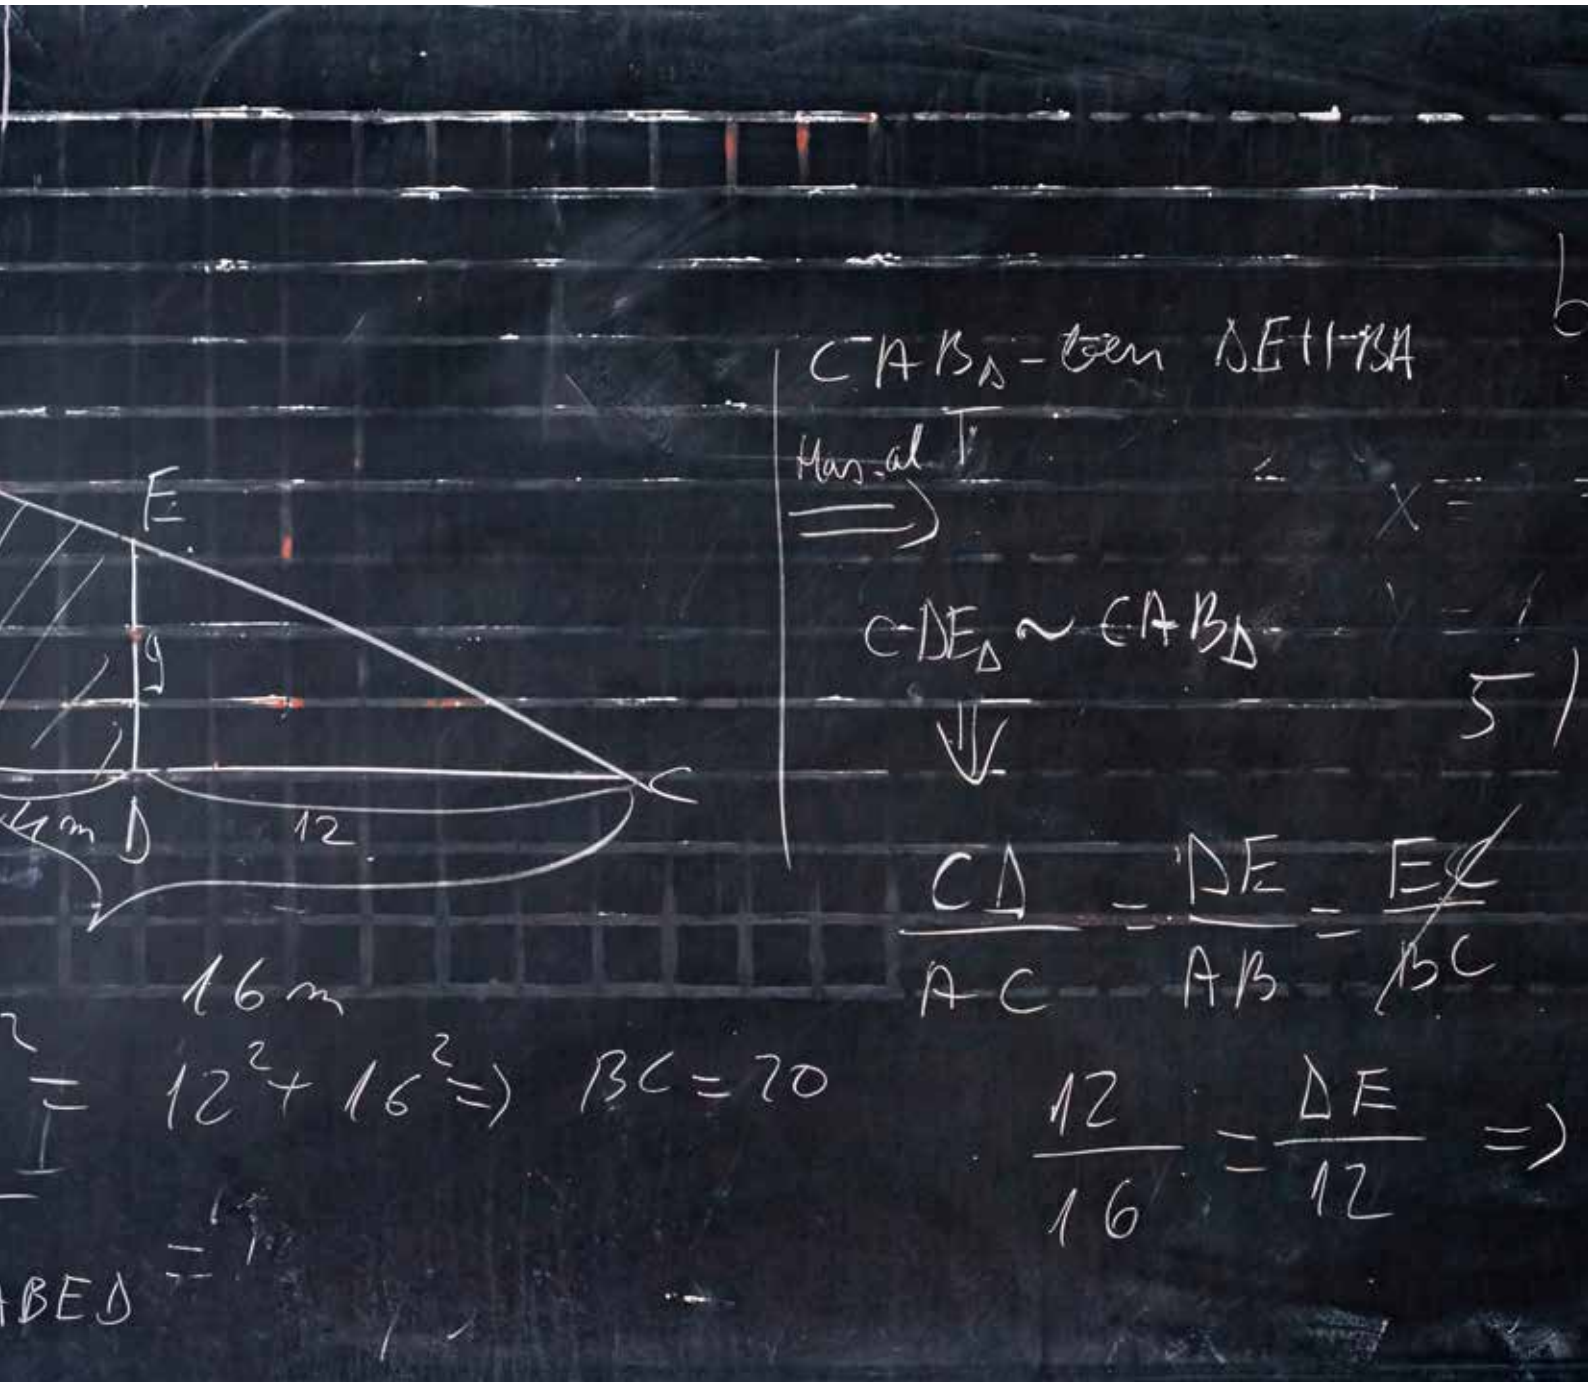 E
9
4m D 12 C
16m
² = 12² + 16² => BC = 20
ABED =
CAB△-ben DE || BA
Has. al T
=>
CDE△ ~ CAB△
⇓
CD/AC = DE/AB = EC/BC
12/16 = DE/12 =>
b
x =
51